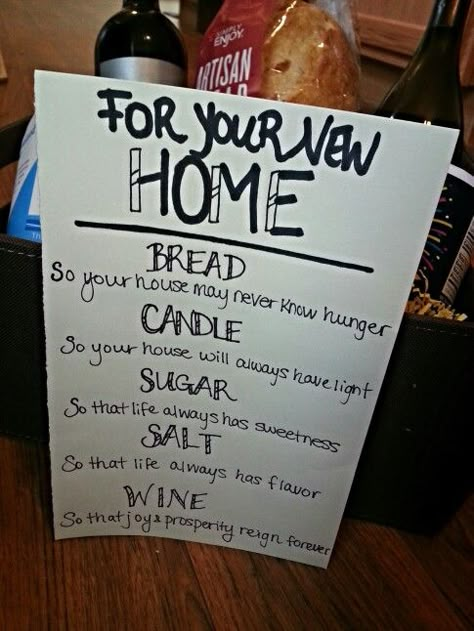 SIMPLY
ENJOY
ARTISAN
FOR YOUR NEW
HOME
BREAD
So your house may never know hunger
CANDLE
So your house will always have light
SUGAR
So that life always has sweetness
SALT
So that life always has flavor
WINE
So that joy & prosperity reign forever